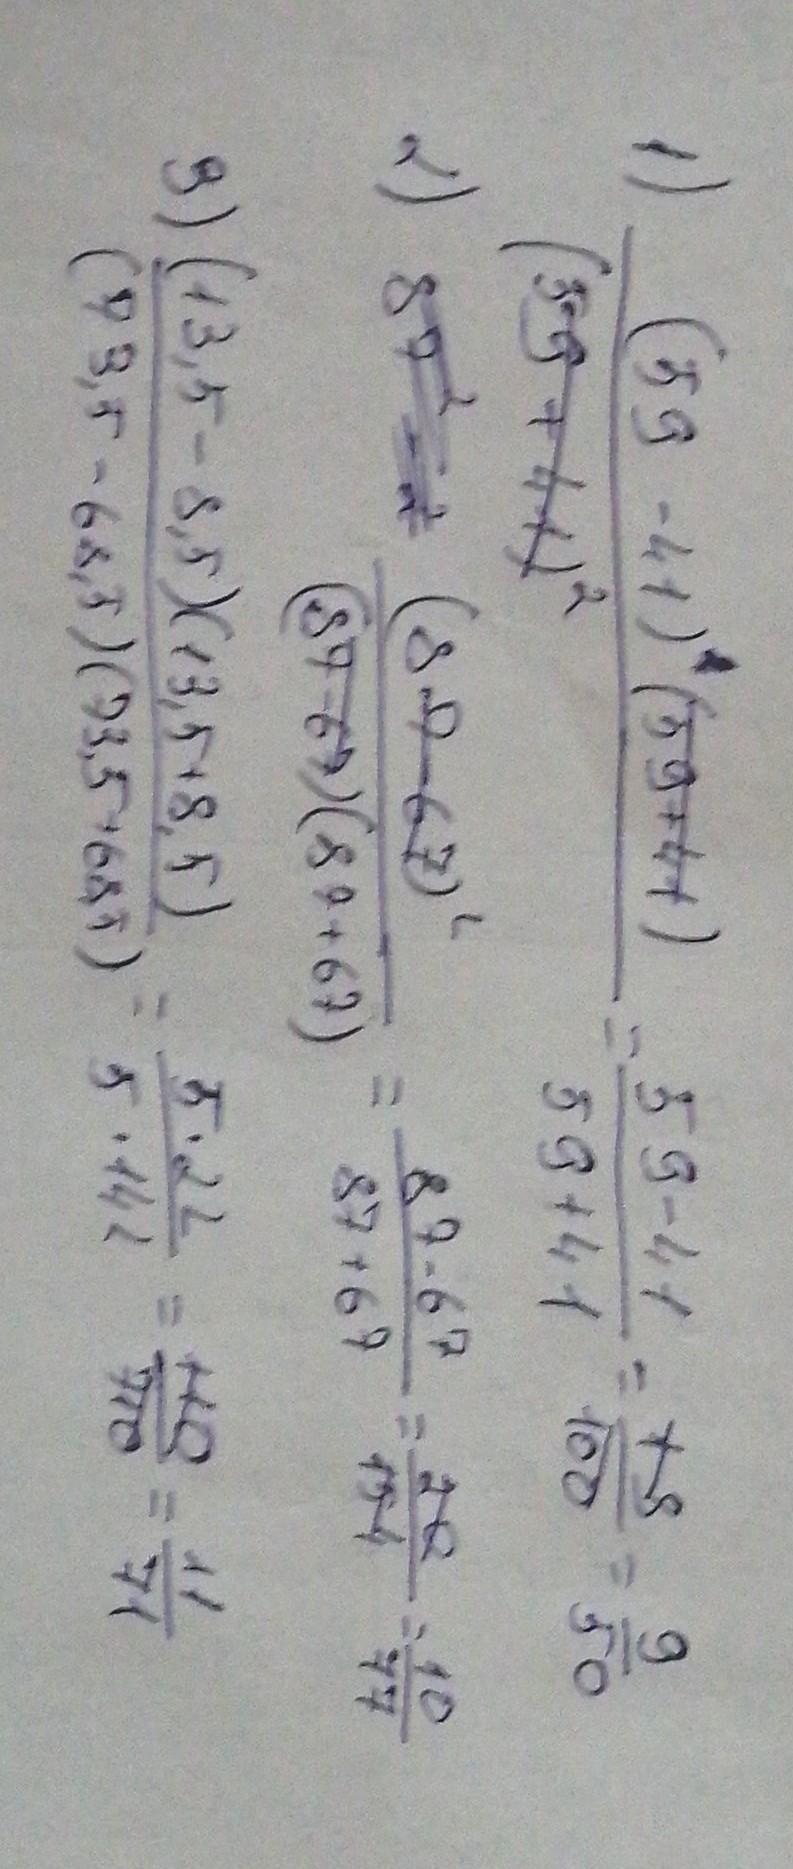 1) (59 - 41)(59 + 41) / (59 + 41)² = 59 - 41 / 59 + 41 = 18 / 100 = 9 / 50
2) (87 - 67)² / (87 - 67)(87 + 67) = 87 - 67 / 87 + 67 = 20 / 154 = 10 / 77
3) (13,5 - 8,5)(13,5 + 8,5) / (73,5 - 68,5)(73,5 + 68,5) = 5 · 22 / 5 · 142 = 110 / 710 = 11 / 71